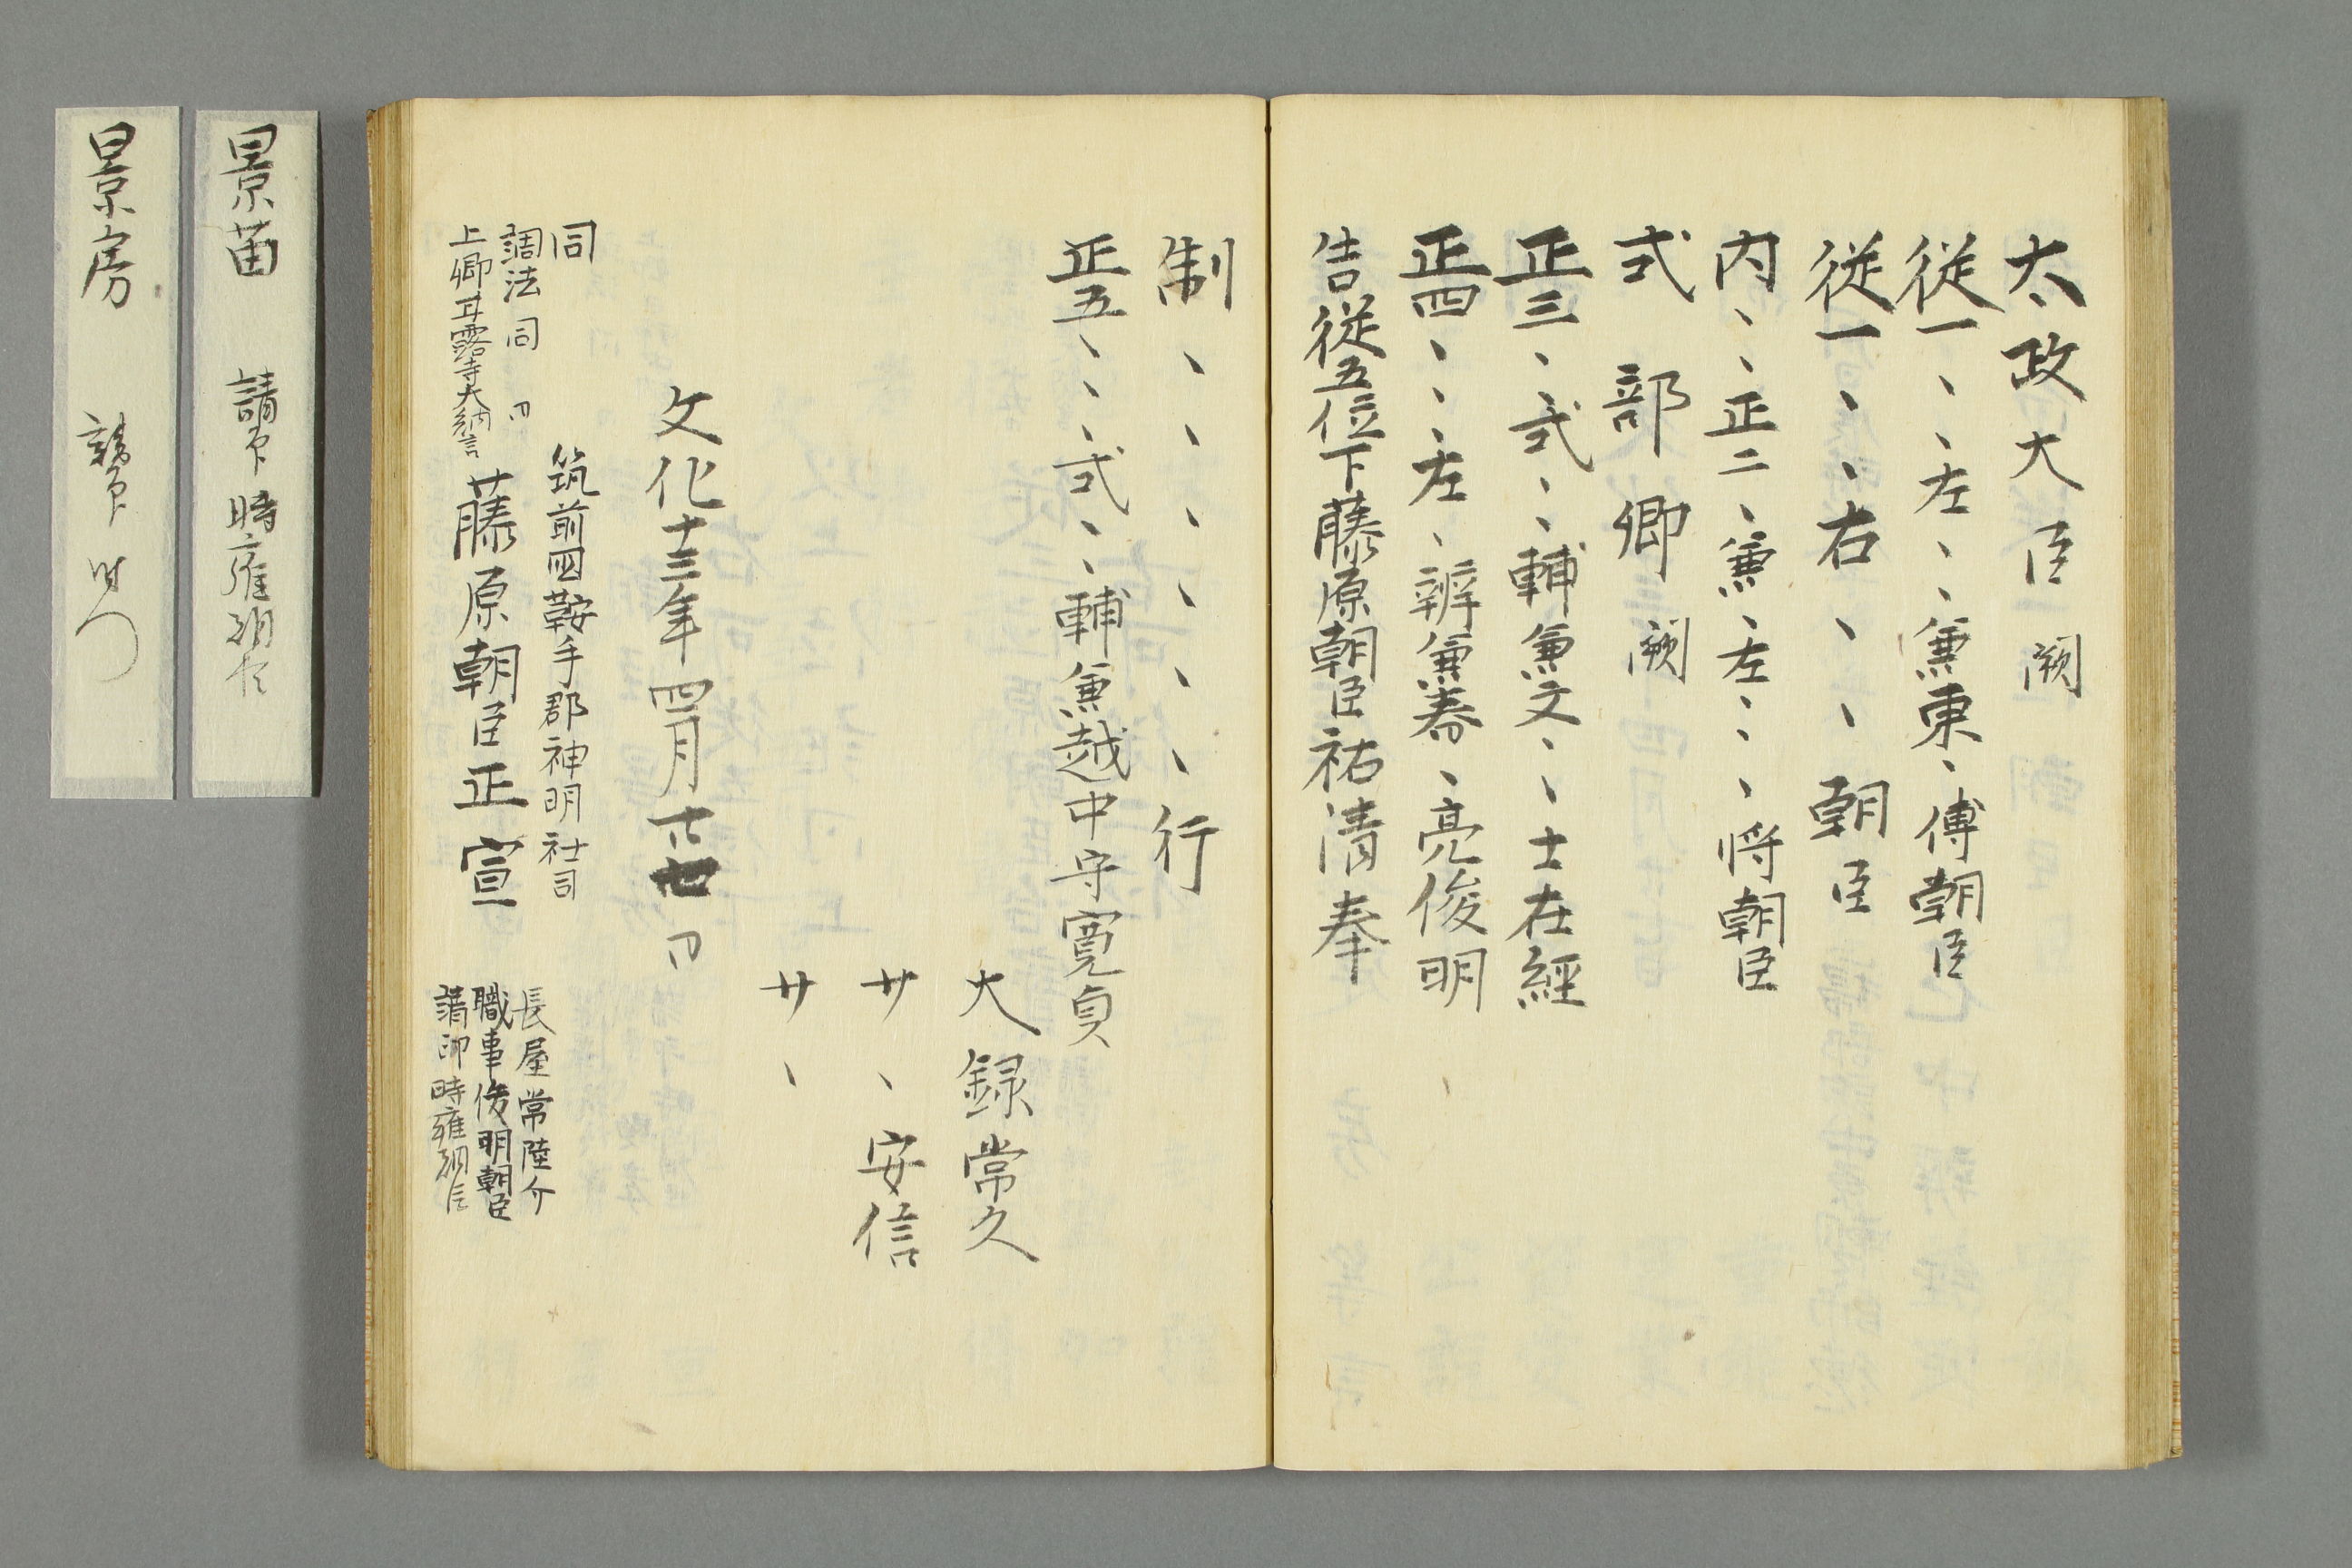 太政大臣 闕
従一、、、左、、兼東、傅朝臣
従一、、、右、、、朝臣
内、、正二、兼、左、、、将朝臣
式部卿 闕
正三、、式、、輔兼文、、士在經
正四、、、左、辨兼春、亮俊明
告従五位下藤原朝臣祐清奉
制、、、、、、行
正五、、、式、、輔兼越中守寛貞
大録常久
サ、安信
サ、
文化十三年四月廿七日
同
調法同日
上卿甘露寺大納言
筑前國鞍手郡神明社司
藤原朝臣正宣
長屋常陸介
職事俊明朝臣
請印時雍朝臣
景苗 請印 時雍朝臣
景房 請印